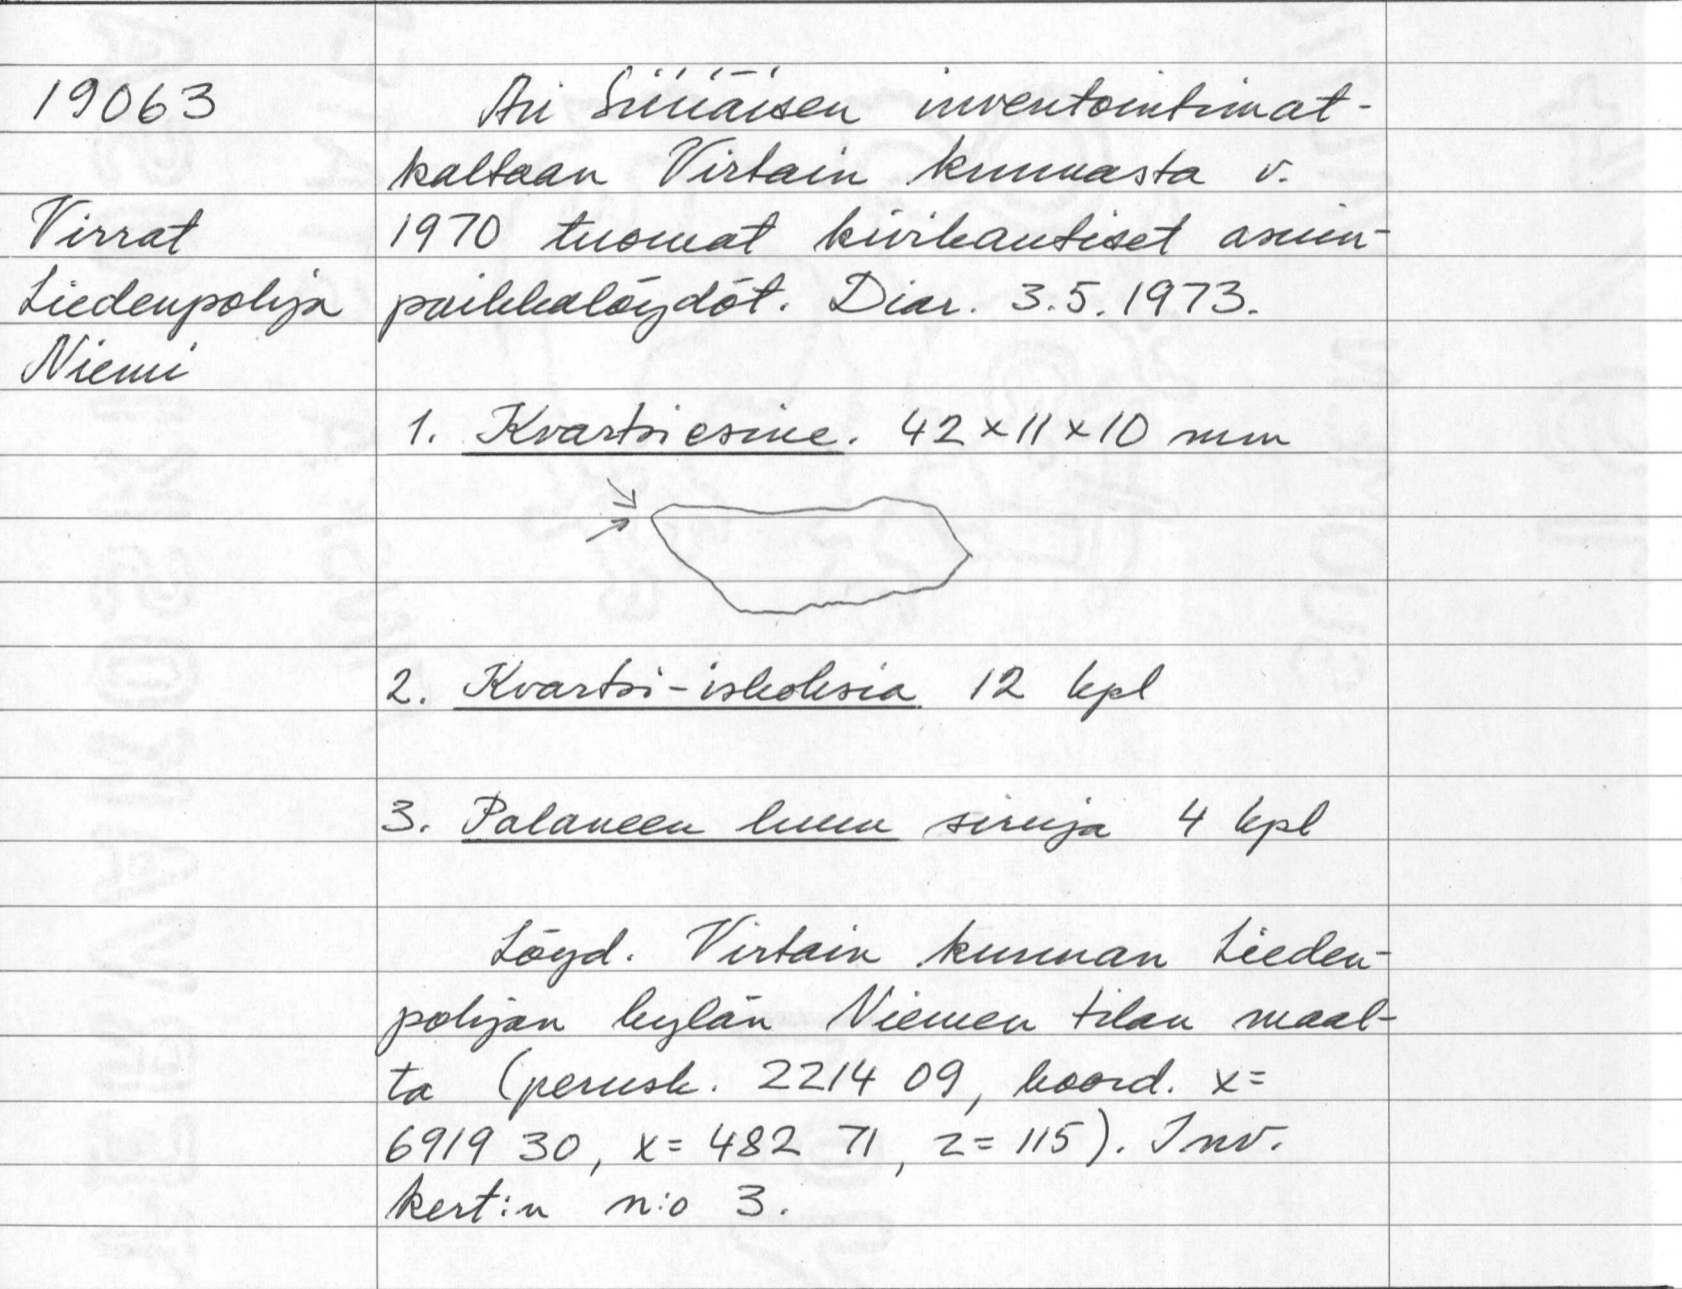 19063
Virrat
Liedenpohja
Niemi
Ari Siiriäisen inventointimat-
kaltaan Virtain kunnasta v.
1970 tuomat kivikautiset asuin-
paikkalöydöt. Diar. 3.5.1973.
1. Kvartsiesine. 42×11×10 mm
2. Kvartsi-iskoksia 12 kpl
3. Palaneen luun siruja 4 kpl
Löyd. Virtain kunnan Lieden-
pohjan kylän Niemen tilan maal-
ta (perusk. 2214 09, koord. x=
6919 30, x= 482 71, z= 115). Inv.
kert:n n:o 3.